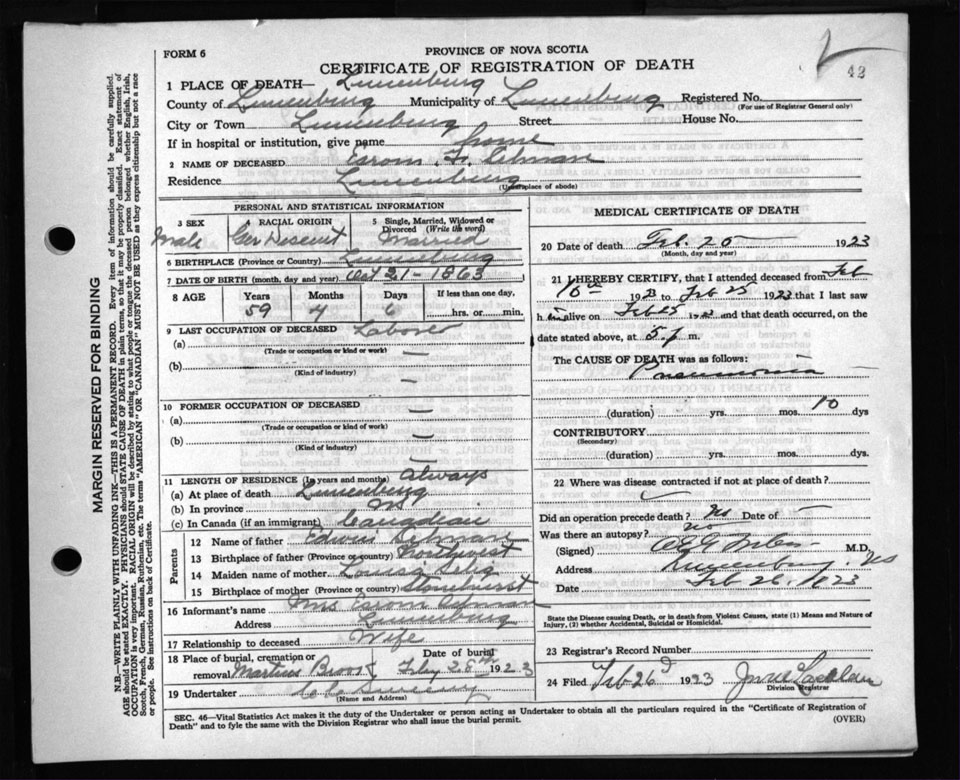 FORM 6
PROVINCE OF NOVA SCOTIA
CERTIFICATE OF REGISTRATION OF DEATH
42
1 PLACE OF DEATH— Lunenburg
County of Lunenburg Municipality of Lunenburg Registered No.
(For use of Registrar General only)
City or Town Lunenburg Street House No.
If in hospital or institution, give name home
2 NAME OF DECEASED
Residence Lunenburg
(Usual place of abode)
PERSONAL AND STATISTICAL INFORMATION
3 SEX 4 RACIAL ORIGIN 5 Single, Married, Widowed or Divorced (Write the word)
Male Ger Descent Married
6 BIRTHPLACE (Province or Country) Lunenburg
7 DATE OF BIRTH (month, day and year) Oct 21 - 1863
8 AGE Years Months Days If less than one day,
59 4 hrs. or min.
9 LAST OCCUPATION OF DECEASED Laborer
(a) —
(Trade or occupation or kind or work)
(b) —
(Kind of industry)
10 FORMER OCCUPATION OF DECEASED
(a) —
(Trade or occupation or kind or work)
(b) —
(Kind of industry)
11 LENGTH OF RESIDENCE (In years and months) always
(a) At place of death Lunenburg
(b) In province
(c) In Canada (if an immigrant) Canadian
Parents
12 Name of father Edwin
13 Birthplace of father (Province or country) Northwest
14 Maiden name of mother Louisa Selig
15 Birthplace of mother (Province or country) Stonehurst
16 Informant's name Mrs
Address Lunenburg
17 Relationship to deceased Wife
18 Place of burial, cremation or removal Date of burial
Martins Brook Feby 28th 1923
19 Undertaker
(Name and Address)
MEDICAL CERTIFICATE OF DEATH
20 Date of death Feb. 25 1923
(Month, day and year)
21 I HEREBY CERTIFY, that I attended deceased from Feb
16th 1923 to Feb 25 1923 that I last saw
h im alive on Feb 25 1923 and that death occurred, on the
date stated above, at 5 p. m.
The CAUSE OF DEATH was as follows:
Pneumonia
(duration) yrs. mos. 10 dys
CONTRIBUTORY
(Secondary)
(duration) yrs. mos. dys.
22 Where was disease contracted if not at place of death?
Did an operation precede death? No Date of —
Was there an autopsy? no
(Signed) M.D.
Address Lunenburg. NS
Date Feb 26. 1923
State the Disease causing Death, or in death from Violent Causes, state (1) Means and Nature of Injury, (2) whether Accidental, Suicidal or Homicidal.
23 Registrar's Record Number
24 Filed Feb 26 1923
Division Registrar
SEC. 46—Vital Statistics Act makes it the duty of the Undertaker or person acting as Undertaker to obtain all the particulars required in the "Certificate of Registration of
Death" and to fyle the same with the Division Registrar who shall issue the burial permit.
(OVER)
MARGIN RESERVED FOR BINDING
N.B—WRITE PLAINLY WITH UNFADING INK—THIS IS A PERMANENT RECORD. Every item of information should be carefully supplied.
AGE should be stated EXACTLY. PHYSICIANS should STATE CAUSE OF DEATH in plain terms, so that it may be properly classified. Exact statement of
OCCUPATION is very important. RACIAL ORIGIN will be described by stating to what people or tongue the deceased person belonged whether English, Irish,
Scotch, French, German, Russian, Ruthenian, etc. The terms "AMERICAN" OR "CANADIAN" MUST NOT BE USED as they express citizenship but not a race
or people. See instructions on back of Certificate.